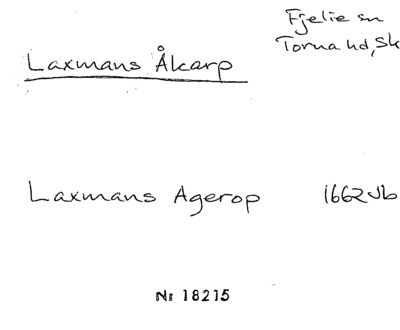 Fjelie sn
Torna hd, Sk
Laxmans Åkarp
Laxmans Agerop 1662 Jb
Nr 18215